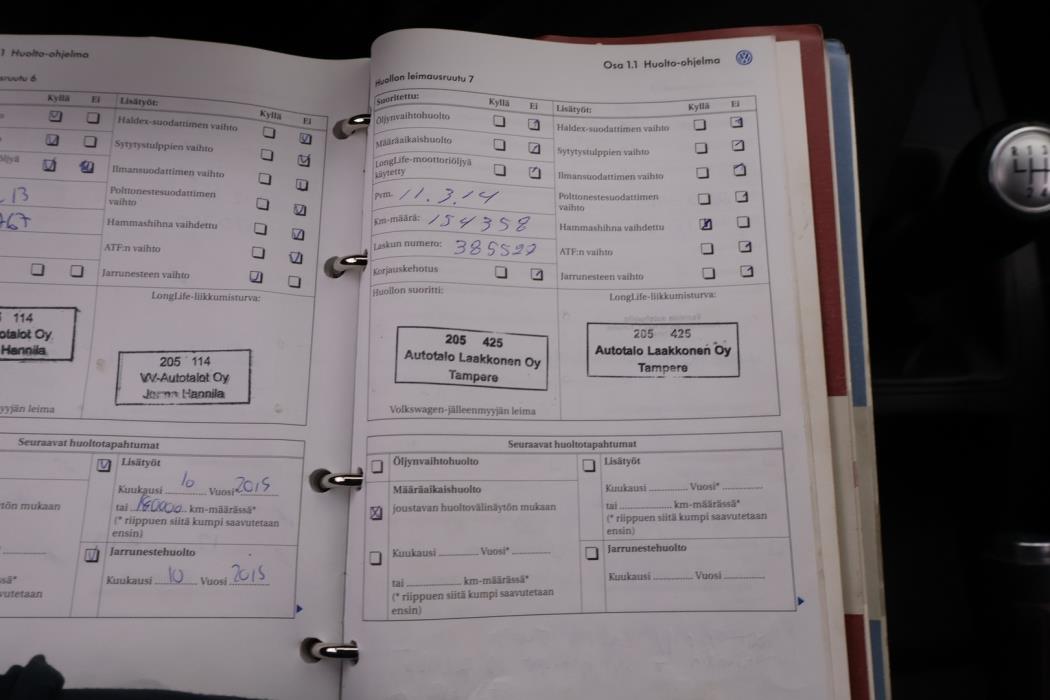 1 Huolto-ohjelma
sruutu 6
Kyllä Ei Lisätyöt: Kyllä Ei
Haldex-suodattimen vaihto
Sytytystulppien vaihto
öljyä
Ilmansuodattimen vaihto
Polttonestesuodattimen
vaihto
Hammashihna vaihdettu
ATF:n vaihto
Jarrunesteen vaihto
LongLife-liikkumisturva:
114
otalot Oy
Hannila
205 114
VV-Autotalot Oy
Jorma Hannila
yyjän leima
Seuraavat huoltotapahtumat
Lisätyöt
Kuukausi 10 Vuosi* 2015
tai 180000 km-määrässä*
(* riippuen siitä kumpi saavutetaan
ensin)
tön mukaan
Jarrunestehuolto
Kuukausi 10 Vuosi 2015
ssä*
vutetaan
Osa 1.1 Huolto-ohjelma
Huollon leimausruutu 7
Suoritettu: Kyllä Ei Lisätyöt: Kyllä Ei
Öljynvaihtohuolto
Määräaikaishuolto
LongLife-moottoriöljyä
käytetty
Pvm. 11.3.14
Km-määrä: 154358
Laskun numero: 385522
Korjauskehotus
Haldex-suodattimen vaihto
Sytytystulppien vaihto
Ilmansuodattimen vaihto
Polttonestesuodattimen
vaihto
Hammashihna vaihdettu
ATF:n vaihto
Jarrunesteen vaihto
Huollon suoritti:
LongLife-liikkumisturva:
205 425
Autotalo Laakkonen Oy
Tampere
205 425
Autotalo Laakkonen Oy
Tampere
Volkswagen-jälleenmyyjän leima
Seuraavat huoltotapahtumat
Öljynvaihtohuolto
Määräaikaishuolto
joustavan huoltovälinäytön mukaan
Kuukausi Vuosi*
tai km-määrässä*
(* riippuen siitä kumpi saavutetaan
ensin)
Lisätyöt
Kuukausi Vuosi*
tai km-määrässä*
(* riippuen siitä kumpi saavutetaan
ensin)
Jarrunestehuolto
Kuukausi Vuosi